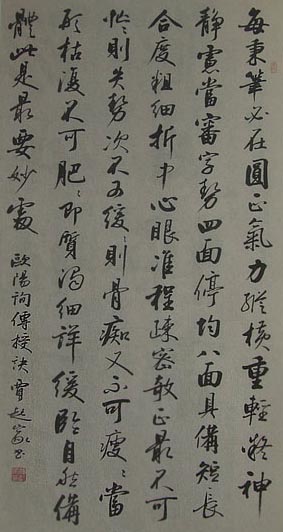 每秉筆必在圓正氣力縱橫重輕凝神
靜慮當審字勢四面停均八面具備短長
合度粗細折中心眼准程疎密欹正最不可
忙〻則失勢次不可緩〻則骨痴又不可瘦〻當
形枯復不可肥〻即質濁細詳緩臨自然備
體此是最要妙處 歐陽詢傳授訣 書